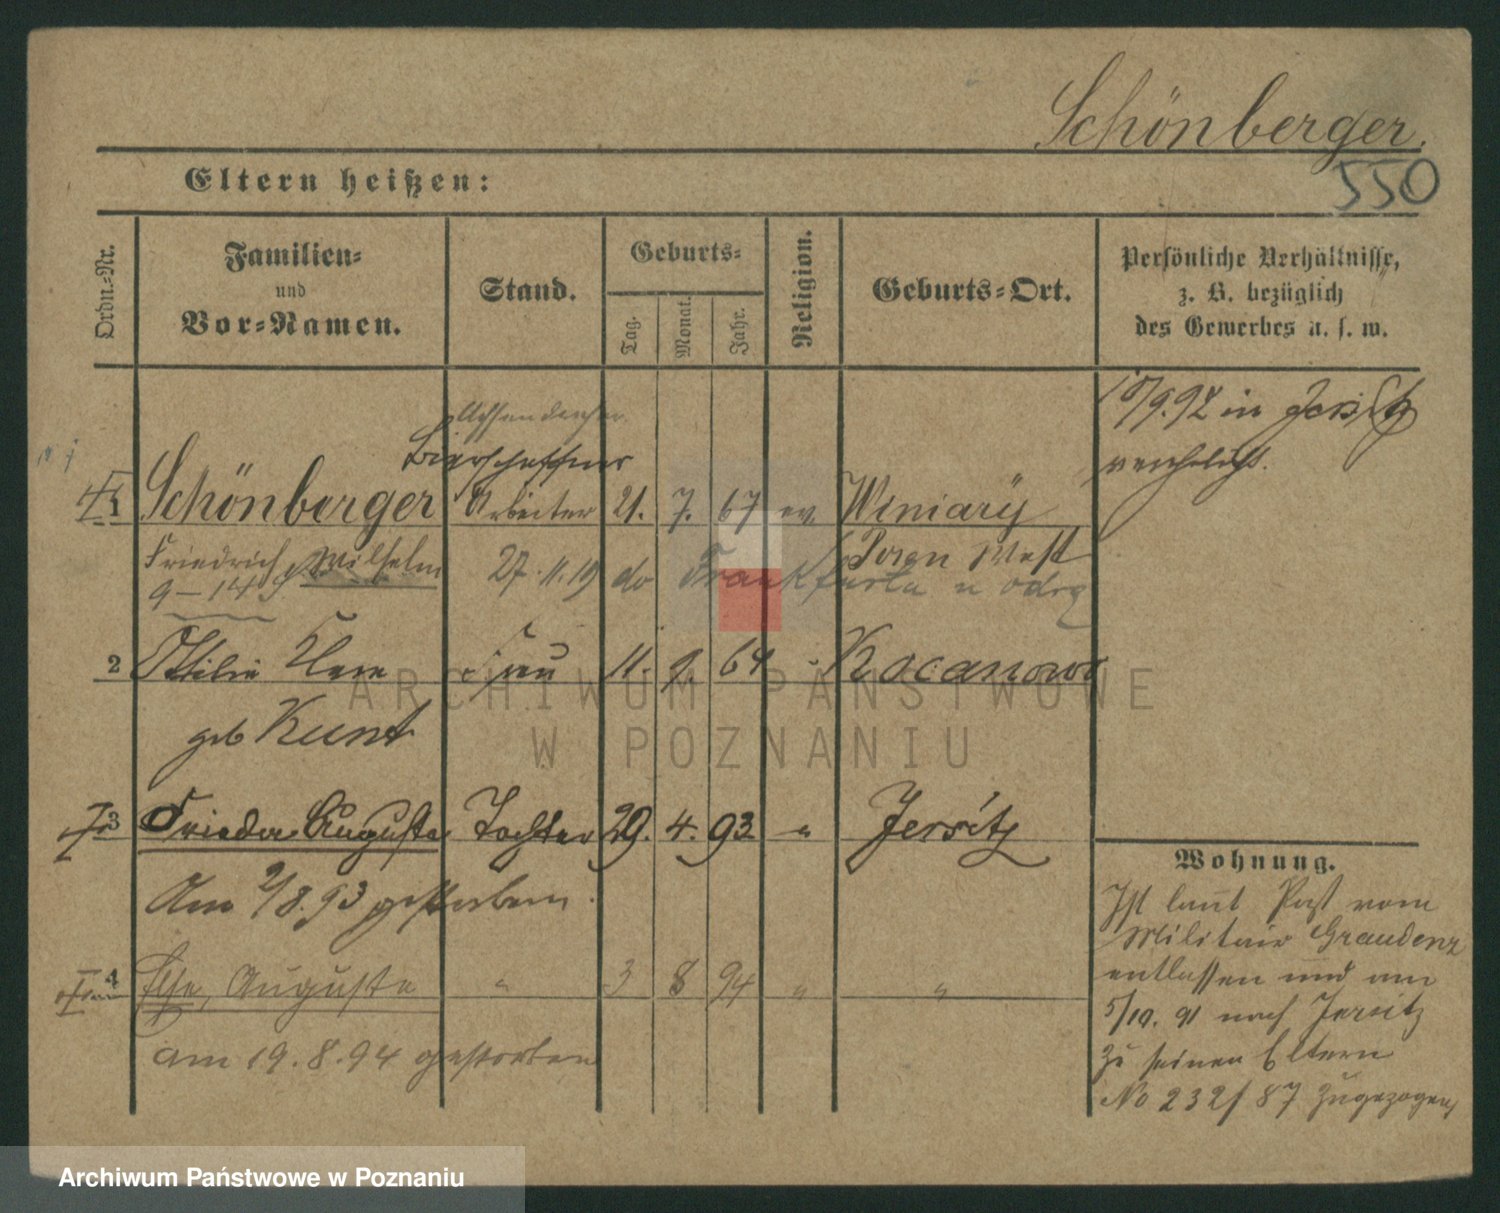 Schönberger.
550
Eltern heißen:
Ordn.-Nr.
Familien-
und
Vor-Namen.
Stand.
Geburts-
Tag.
Monat.
Jahr.
Religion.
Geburts-Ort.
Persönliche Verhältnisse,
z. B. bezüglich
des Gewerbes u. s. w.
10/9.92 in Jersitz
verehelicht.
Bierschaffner
1 Schönberger Arbeiter 21. 7. 67 ev. Winiary
Friedrich Wilhelm Posen West
9-14
27.11.19 do Frankfurta n Odrą
2 Ottilie Frau 11. 9. 64 " Kocanowo
geb Kunt
3 Frieda Auguste Tochter 29. 4. 93 " Jersitz
Am 2/8.93 gestorben.
4 Else, Auguste " 3 8 94 " "
am 19.8.94 gestorben
Wohnung.
Ist laut Paß vom
Militair Graudenz
entlassen und am
5/10. 91 nach Jersitz
zu seinen Eltern
No 232/87 zugezogen
ARCHIWUM PAŃSTWOWE
W POZNANIU
Archiwum Państwowe w Poznaniu